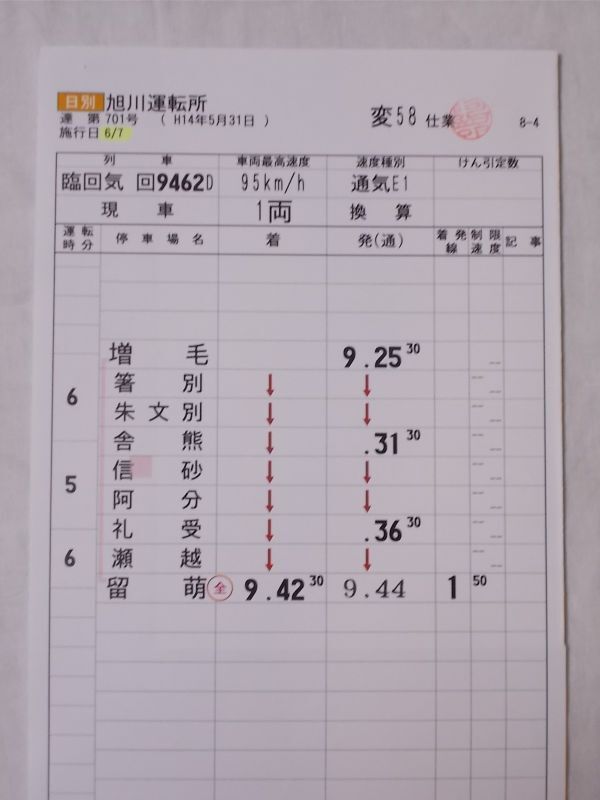 日別 旭川運転所
達 第 701号 ( H14年5月31日 )
変58 仕業
8-4
施行日 6/7
列 車 車両最高速度 速度種別 けん引定数
臨回気 回9462D 95km/h 通気E1
現 車 1両 換 算
運転時分 停 車 場 名 着 発(通) 着発線 制限速度 記 事
増 毛 9.25 30
箸 別 ↓ ↓
6
朱文別 ↓ ↓
舎 熊 ↓ .31 30
信 砂 ↓ ↓
5
阿 分 ↓ ↓
礼 受 ↓ .36 30
6 瀬 越 ↓ ↓
留 萌 全 9.42 30 9.44 1 50